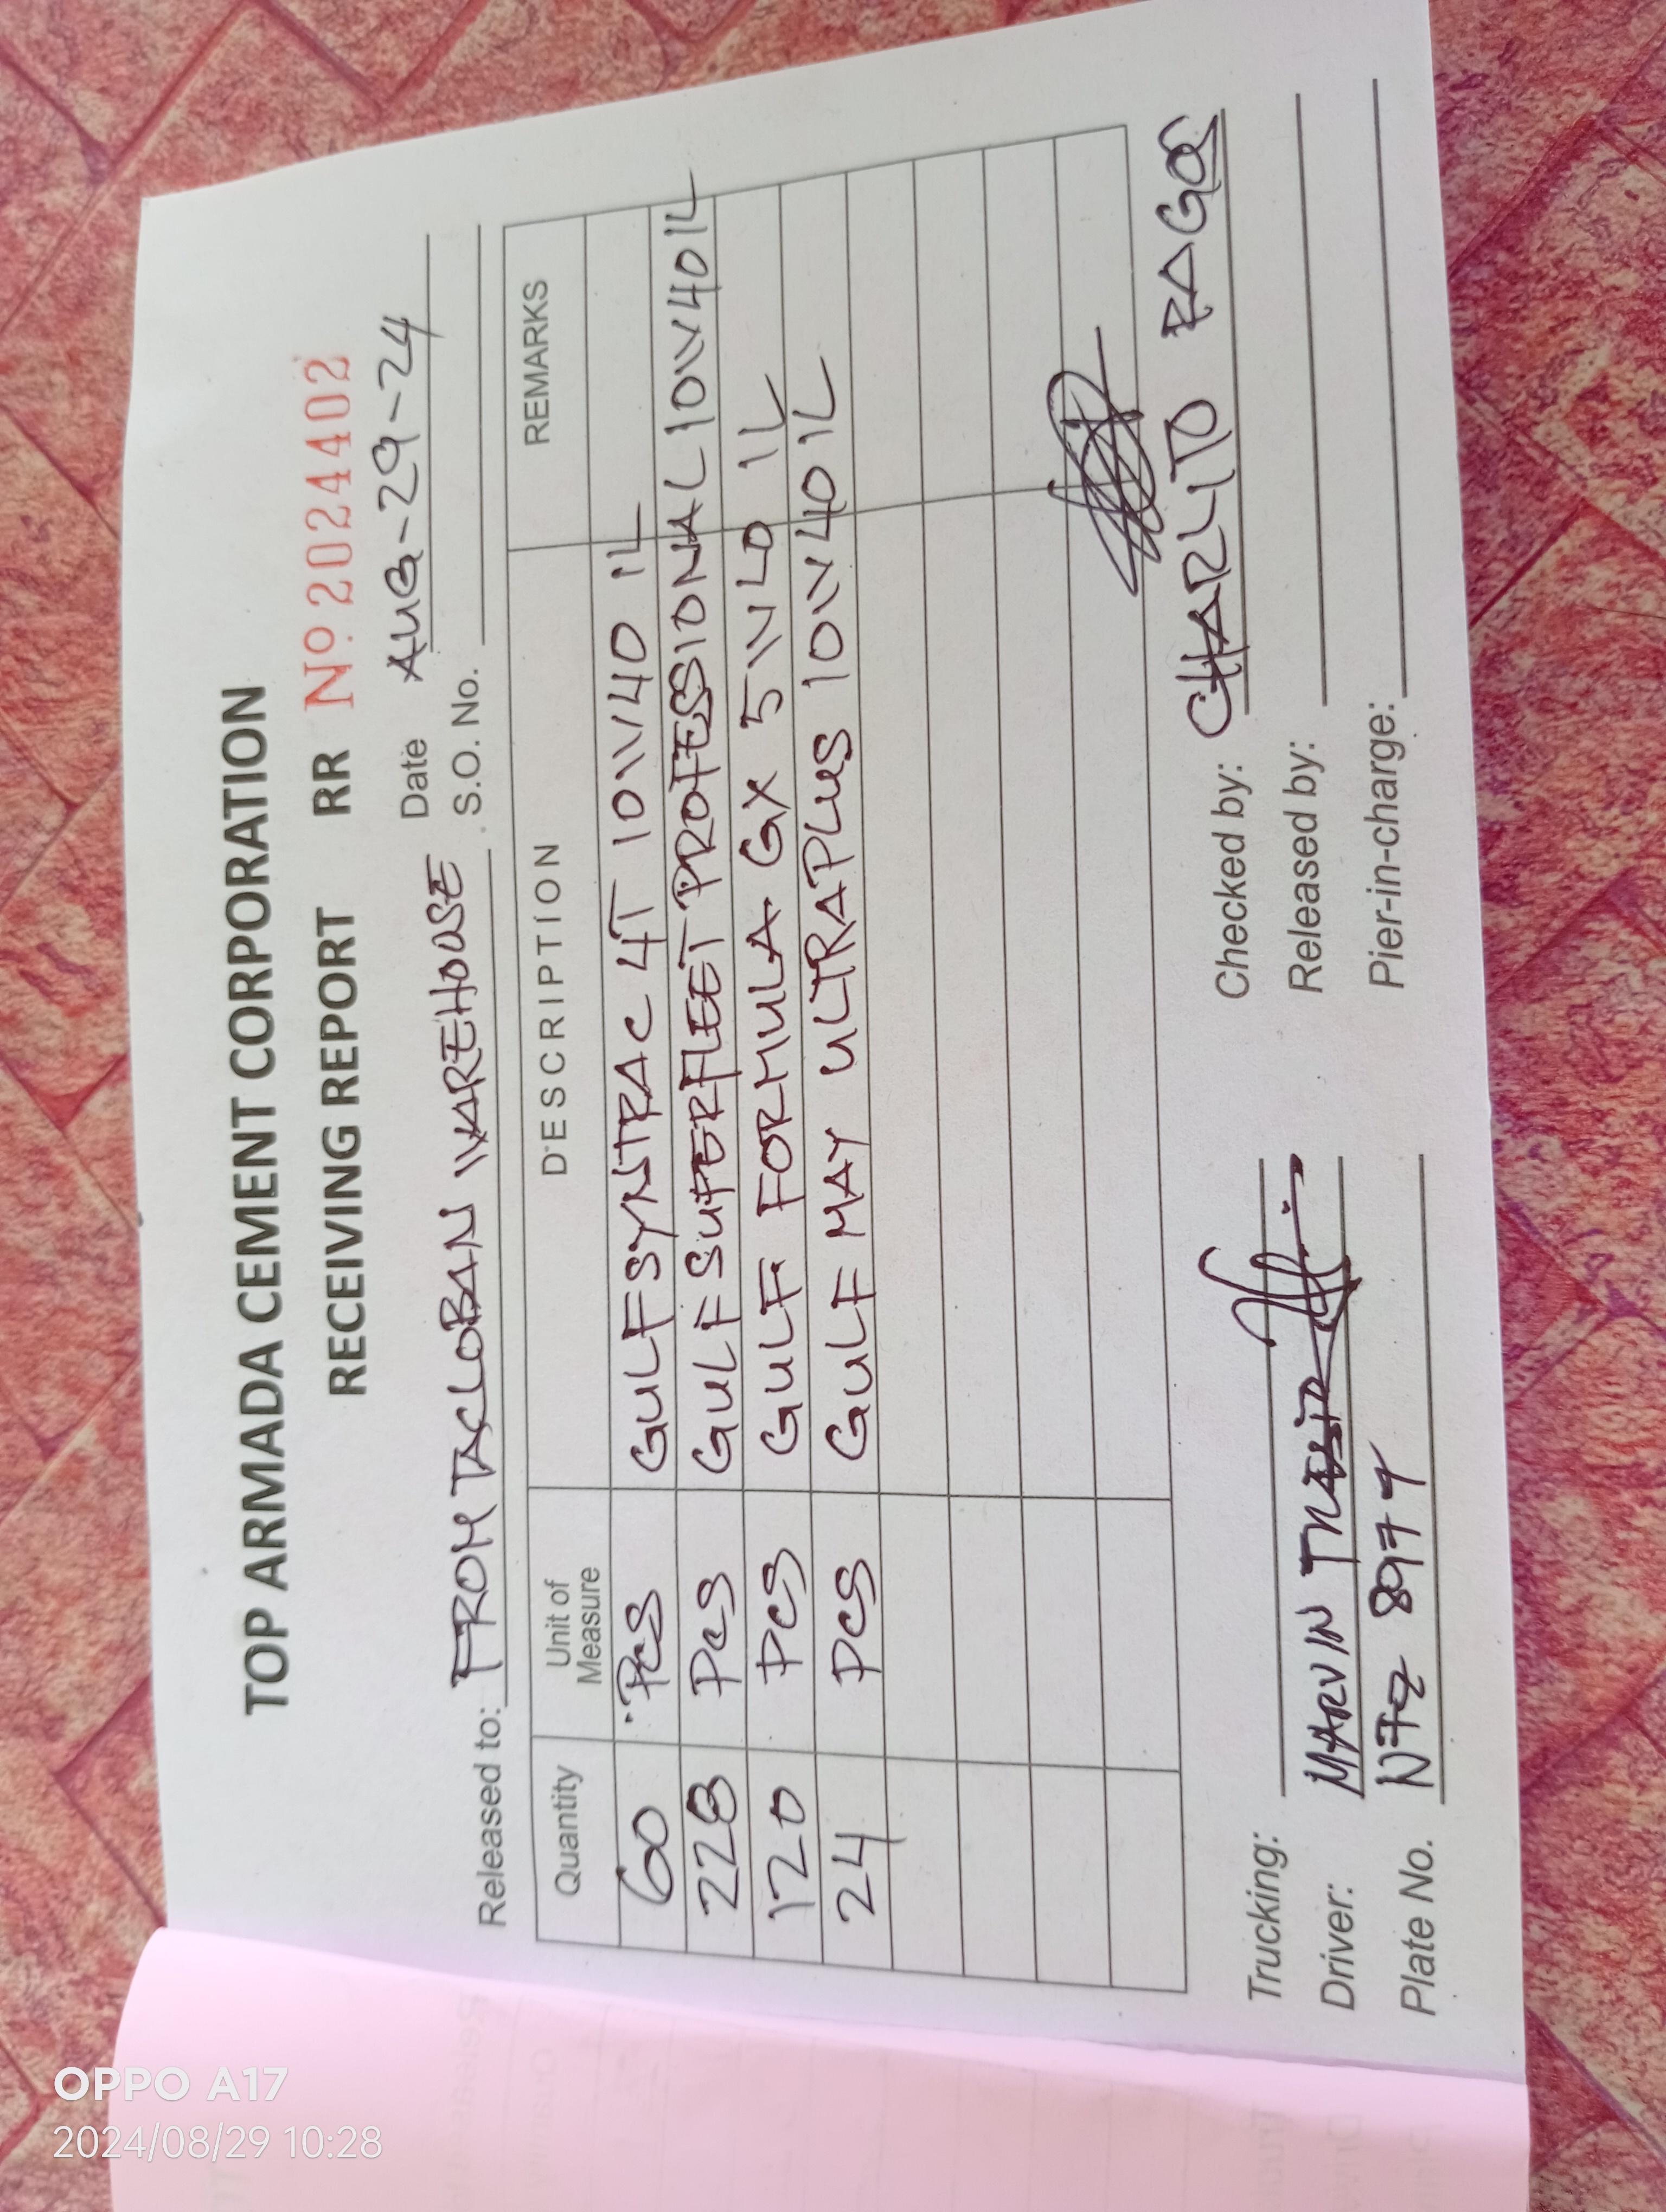 TOP ARMADA CEMENT CORPORATION
RECEIVING REPORT RR Nº 2024402
Date AUG-29-24
Released to: FROM TACLOBAN WAREHOUSE S.O. No.
Quantity Unit of Measure DESCRIPTION REMARKS
60 Pcs GULF SYNTRAC 4T 10W40 1L
228 Pcs GULF SUPERFLEET PROFESSIONAL 10W40 1L
120 Pcs GULF FORMULA GX 5W40 1L
24 Pcs GULF MAY ULTRAPLUS 10W40 1L
Trucking: Checked by: CHARLITO RAGOS
Driver: MARVIN Released by:
Plate No. Pier-in-charge:
OPPO A17
2024/08/29 10:28